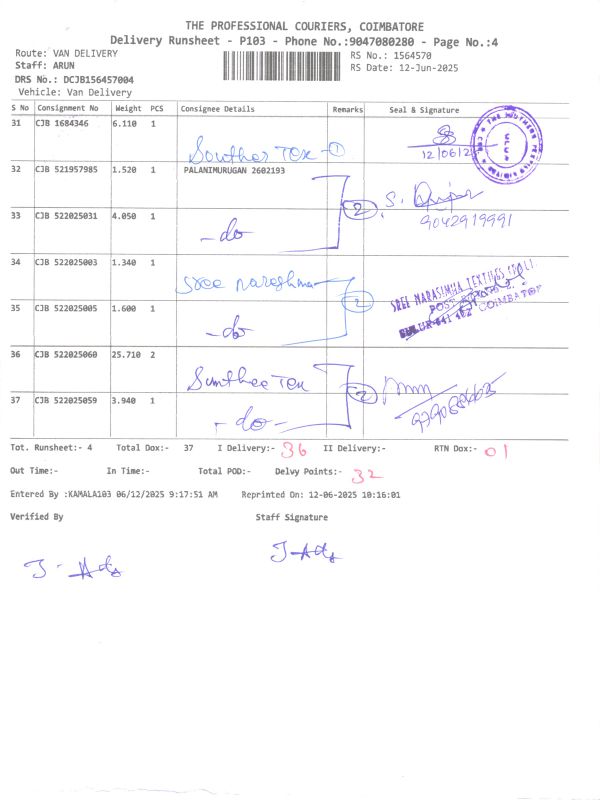 THE PROFESSIONAL COURIERS, COIMBATORE
Delivery Runsheet - P103 - Phone No.:9047080280 - Page No.:4
Route: VAN DELIVERY
RS No.: 1564570
Staff: ARUN
RS Date: 12-Jun-2025
DRS No.: DCJB156457004
Vehicle: Van Delivery
S No Consignment No Weight PCS Consignee Details Remarks Seal & Signature
31 CJB 1684346 6.110 1
12/06/2
32 CJB 521957985 1.520 1 PALANIMURUGAN 2602193
2
9042919991
33 CJB 522025031 4.050 1 - do
34 CJB 522025003 1.340 1 Sree
2
SREE NARASIMHA TEXTILES
COIMBATOR
35 CJB 522025005 1.600 1 - do
36 CJB 522025060 25.710 2
2
37 CJB 522025059 3.940 1 - do -
Tot. Runsheet:- 4 Total Dox:- 37 I Delivery:- 36 II Delivery:- RTN Dox:- 01
Out Time:- In Time:- Total POD:- Delvy Points:- 32
Entered By :KAMALA103 06/12/2025 9:17:51 AM Reprinted On: 12-06-2025 10:16:01
Verified By Staff Signature